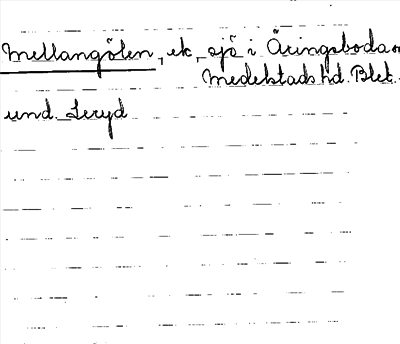 Mellangölen, ek, sjö i Äringsboda
Medelstads hd. Blek.
und. Leryd